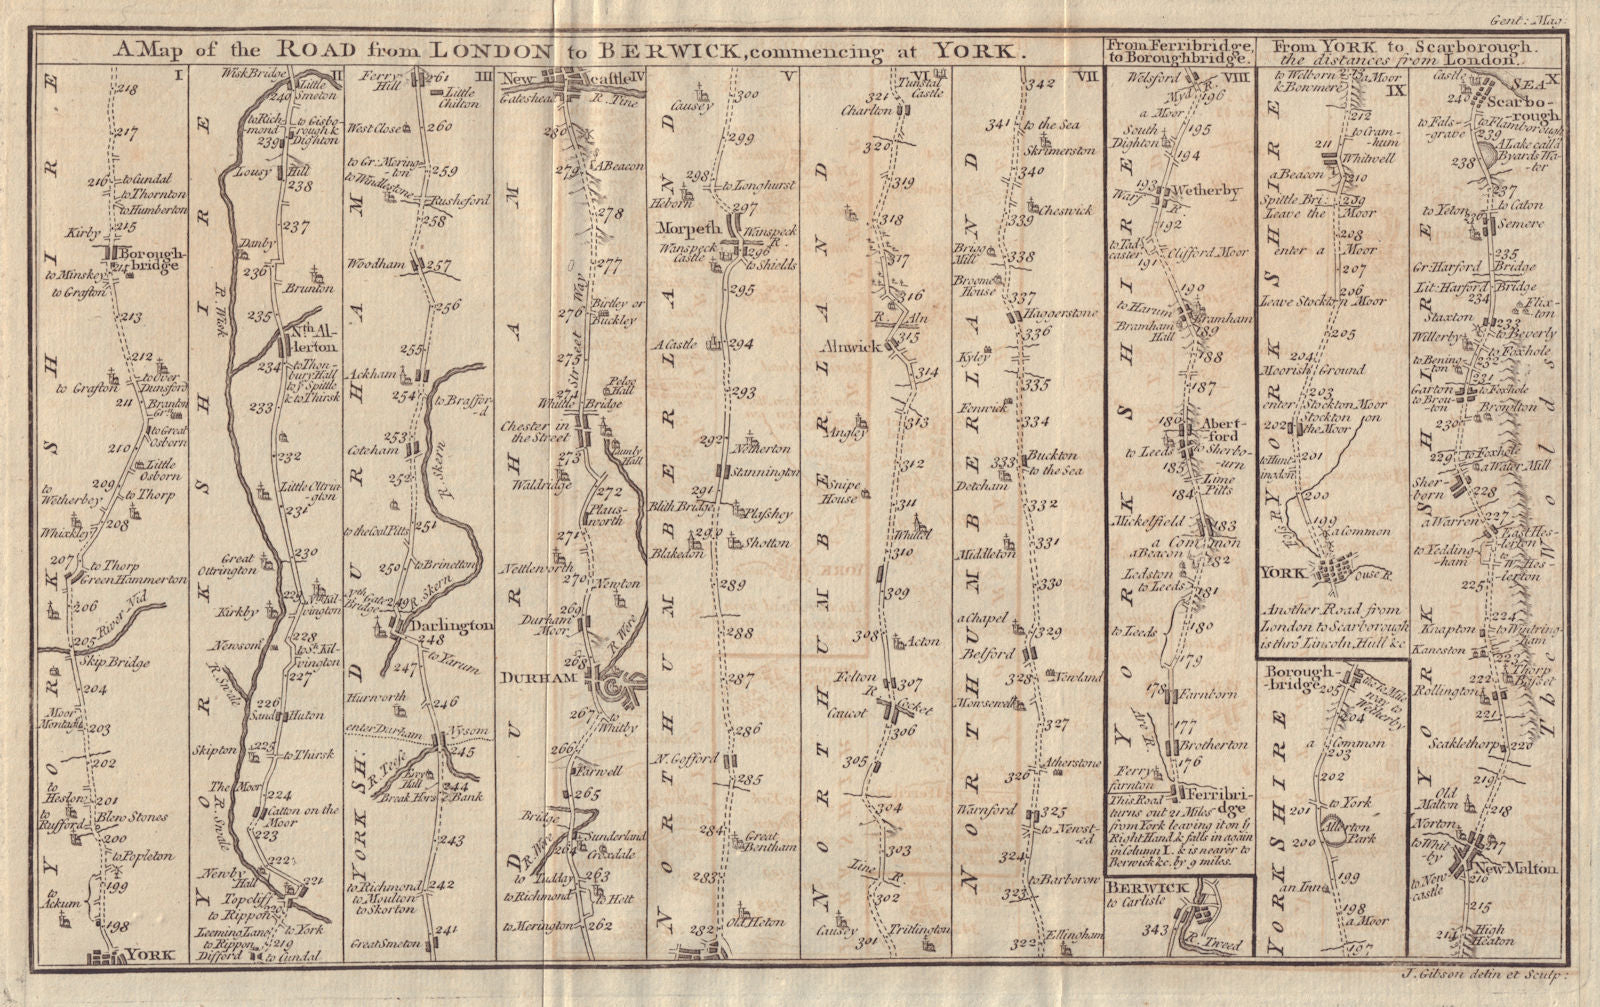 Gent: Mag:
A Map of the ROAD from LONDON to BERWICK, commencing at YORK.
From Ferribridge,
to Boroughbridge.
From YORK to Scarborough.
the distances from London.
I
218
217
216
to Cundal
to Thornton
to Humberton
215
Kirby
Borough-
bridge
to Minskey
to Grafton
213
212
to Over
Dunsford
to Grafton
211
Branton
Grn
to Great
Osborn
210
Little
Osborn
209
to
Wetherbey
to Thorp
208
Whixley
207
to Thorp
Green Hammerton
206
River Nid
205
Skip Bridge
204
Moor
Montagu
203
202
to
Heslow
201
to
Rufford
Blow Stones
200
to Popleton
199
to
Ackum
198
YORK
YORKSHIRE
II
Wisk Bridge
240
Little
Smeton
to Rich-
mond
to Gisbo-
rough &
Dighton
239
Lousy Hill
238
237
Danby
236
Brunton
R. Wisk
235
Nth Al-
lerton
234
to Thorn-
bury Hall
to ye Spittle
& to Thirsk
233
232
231
230
Great
Ottrington
Kirkby
228
227
Newsom
R. Swale
226
Sand Huton
Skipton
225
to Thirsk
The Moor
224
Catton on the
Moor
223
R. Swale
222
Newby
Hall
221
Topcliff
to Rippon
Leeming Lane
to York
to Rippon
219
Difford
to Cundal
YORKSHIRE
III
Ferry
Hill
261
Little
Chilton
West Close
260
to Gr. Mering-
ton
259
to Windlestone
Rusheford
258
Woodham
257
256
255
Ackham
254
to Braffor-
d
253
Cotcham
252
R. Skern
to the Coal Pitts
251
250
to Brinetton
249
R. Skern
Darlington
248
to Yarum
247
Hurworth
246
enter Durham
Nysom
245
R. Tees
Erry
Hill
244
Break Hors Bank
243
to Richmond
242
to Moulton
to Skorton
Great Smeton
241
YORKSH:
DURHAM
IV
New
castle
Gateshead
R. Tine
280
279
A Beacon
278
277
Street Way
276
Birtley or
Buckley
275
274
Pelow
Hall
Whittle Bridge
Chester in
the Street
273
Lumly
Hall
Waldridge
272
Plaus-
worth
271
Nettleworth
270
Newton
269
Durham
Moor
R. Were
268
DURHAM
267
to
Whitby
266
Farwell
265
Bridge
R. Were
264
Sunderland
Croxdale
to Tudday
263
to Richmond
to Holt
to Merington
262
DURHAM
V
Causey
300
299
298
to Longhurst
Heborn
297
Morpeth
Wanspeck
R.
Wanspeck
Castle
296
to Shields
295
A Castle
294
292
Netherton
Stannington
291
Blith Bridge
Plashey
290
Blakedon
Shotton
289
288
287
286
N. Gofford
285
284
Great
Bentham
283
Old Heton
282
NORTHUMBERLAND
VI
Tunstal
Castle
321
Charlton
320
319
318
317
316
R. Aln
315
Alnwick
314
313
Angley
312
Snipe
House
311
Whittel
310
309
308
Acton
Felton
307
R
Caucot
Cocket
306
305
304
303
Line R.
302
Causey
301
Tritlington
NORTHUMBERLAND
VII
342
341
to the Sea
Skrimerston
340
Cheswick
339
Brigg
Mill
338
Broome
House
337
Haggerstone
336
Kyley
335
Fenwick
334
Buckton
333
to the Sea
Detcham
332
Middleton
331
330
a Chapel
329
Belford
328
Newland
Mowsewell
327
326
Atherstone
Warnford
325
to Newst-
ed
324
to Barborow
323
322
Ellingham
NORTHUMBERLAND
VIII
Wolsford
Myd R.
196
a Moor
195
South
Dighton
194
193
Wetherby
Warf R.
192
to Tad-
caster
191
Clifford Moor
190
to Harum
Bramham
Bramham
Hall
189
188
187
186
Abert-
ford
to Leeds
to Sherbo-
urn
185
Lime
Pitts
184
Mickelfield
183
a Common
a Beacon
182
Ledston
to Leeds
181
180
to Leeds
179
178
Farnborn
177
Are R.
Brotherton
176
Ferry
farnton
Ferribri-
dge
This Road
turns out 21 Miles
from York leaving it on ye
Right Hand & falls in again
in Column I. & is nearer to
Berwick &c. by 9 miles.
YORKSHIRE
BERWICK
to Carlisle
343
R. Tweed
IX
to Welborn
& Bowmere
a Moor
212
to Cram-
hum
211
Whitwell
a Beacon
210
Spittle Bri.
209
Leave the Moor
208
enter a Moor
207
206
Leave Stockton Moor
205
204
Moorish Ground
203
enter Stockton Moor
Stockton on
202
the Moor
201
to Hunt-
ingdon
200
199
a Common
Foss R.
YORK
Ouse R.
Another Road from
London to Scarborough
is thro' Lincoln, Hull &c
YORKSHIRE
Borough-
-bridge
205
204
a Common
203
202
201
to York
Allerton
Park
200
199
an Inn
198
a Moor
197
YORKSHIRE
X
Castle
SEA
240
Scarbo-
rough
to Fals-
grave
to Flamborough
239
A Lake call'd
Byards Wa-
ter
238
237
to Caton
to Yeton
236
Semere
235
Gr: Harford Bridge
Lit: Harford Bridge
234
Flix-
ton
Staxton
233
Willerby
to Beverly
to Foxhole
232
to Bening-
ton
231
Garton
to Foxhole
to Brou-
ton
Bromlton
230
to Foxhole
229
a Water Mill
Sher-
bern
228
a Warren
227
East Hes-
lerton
to Yedding-
ham
W. Hes-
lerton
225
224
Knapton
to Wintring-
ham
Kaneston
222
Thorp
Basset
Rollington
221
Scaklethorp
220
219
Old
Malton
218
Norton
to Whit-
by
217
New Malton
216
to New-
castle
215
214
High
Heaton
YORKSHIRE
The Wolds
J. Gibson delin et Sculp: